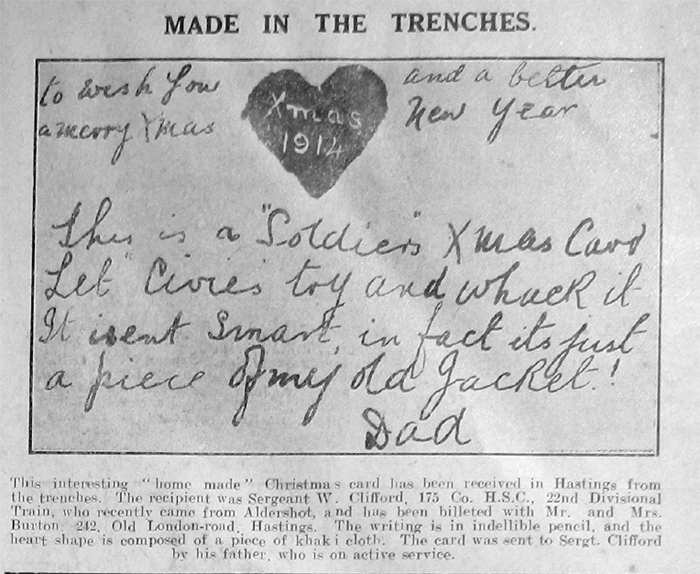 MADE IN THE TRENCHES.
to wish you
a merry Xmas
Xmas
1914
and a better
New Year
This is a "Soldier's" Xmas Card
Let "Civies" try and whack it
It isent Smart, in fact its just
a piece of my old Jacket!
Dad
This interesting "home made" Christmas card has been received in Hastings from
the trenches. The recipient was Sergeant W. Clifford, 175 Co. H.S.C., 22nd Divisional
Train, who recently came from Aldershot, and has been billeted with Mr. and Mrs.
Burton, 242, Old London-road, Hastings. The writing is in indellible pencil, and the
heart shape is composed of a piece of khaki cloth. The card was sent to Sergt. Clifford
by his father, who is on active service.